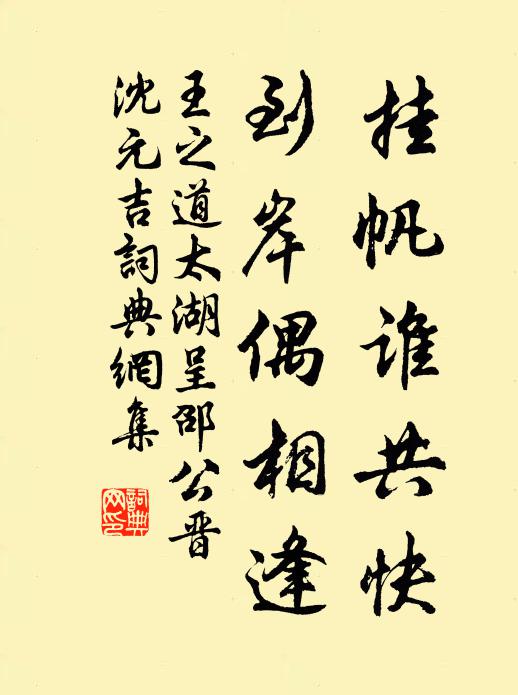 挂帆谁共快
到岸偶相逢
王之道太湖呈邵公晋
沈元吉詞典網集
詞典网印